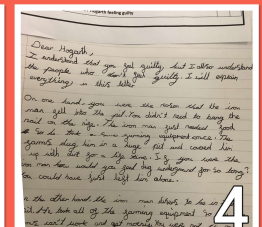 Hogarth feeling guilty
Dear Hogarth,
I understand that you feel guilty, but I also understand
the people who don't feel guilty. I will explain
everything in this letter.
On one hand, you were the reason that the iron
man fell into the pit. You didn't need to bang the
nail on the
The iron man just needed food
So he took
farming equipment once. The
farmers dug him in a huge pit and covered him
up with dirt for a
time. If you were the
iron man how would you feel being underground for so long?
You could have just left him alone.
the other hand the iron man
to be in
pit. He took all of the farming equipment so
can't work and get money. You were not
4